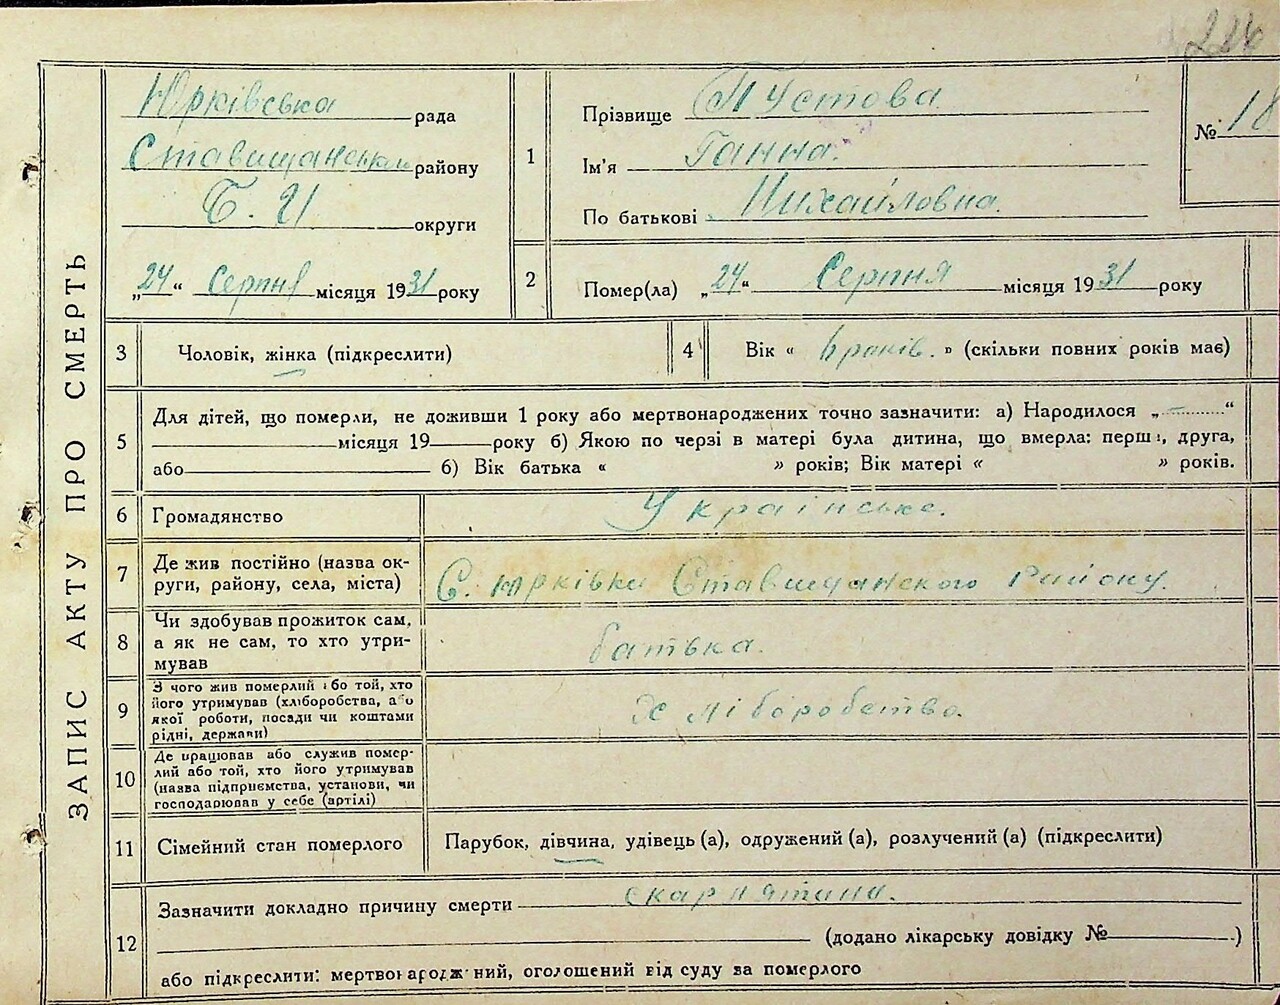 226
ЗАПИС АКТУ ПРО СМЕРТЬ
Юрківська рада
Ставищанськ району
Б. Ц округи
„24“ Серпня місяця 1931 року
1
Прізвище Пустова
Ім'я Ганна.
По батькові Михайловна.
№ 18
2
Помер(ла) „24“ Серпня місяця 1931 року
3 Чоловік, жінка (підкреслити)
4 Вік « 6 років. » (скільки повних років має)
5 Для дітей, що померли, не доживши 1 року або мертвонароджених точно зазначити: а) Народилося „ “
місяця 19 року б) Якою по черзі в матері була дитина, що вмерла: перша, друга,
або б) Вік батька « » років; Вік матері « » років.
6 Громадянство Українське.
7 Де жив постійно (назва ок-
руги, району, села, міста) С. Юрківка Ставищанского Району.
8 Чи здобував прожиток сам,
а як не сам, то хто утри-
мував батька.
9 З чого жив померлий або той, хто
його утримував (хліборобства, або
якої роботи, посади чи коштами
рідні, держави) Хліборобство.
10 Де працював або служив помер-
лий або той, хто його утримував
(назва підприємства, установи, чи
господарював у себе (артілі)
11 Сімейний стан померлого Парубок, дівчина, удівець (а), одружений (а), розлучений (а) (підкреслити)
12 Зазначити докладно причину смерти скарлятина.
(додано лікарську довідку № )
або підкреслити: мертвонароджений, оголошений від суду за померлого